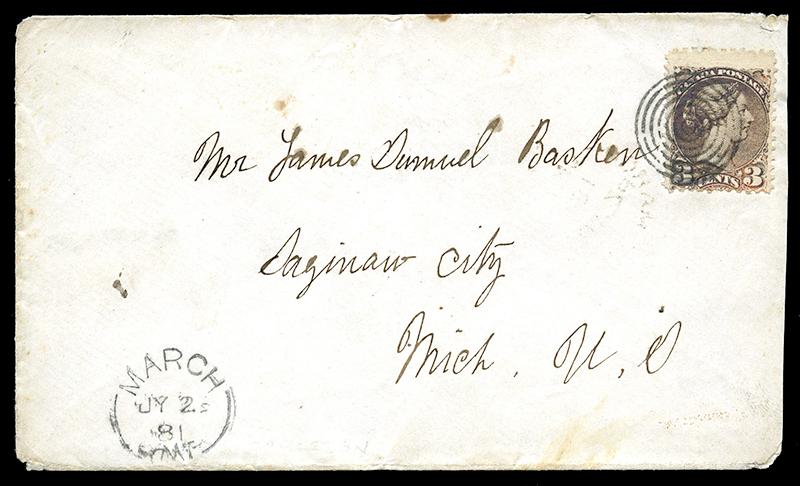 CANADA POSTAGE
3 CENTS 3
Mr James Dumuel Basken
Saginaw City
Mich. U.S
MARCH
JY 2
81
ONT